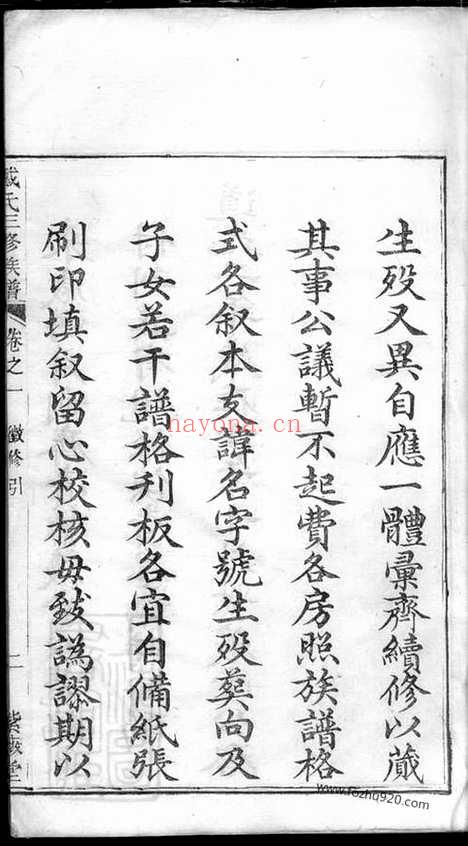 生殁又異自應一體彙齊續修以蕆
其事公議暫不起費各房照族譜格
式各叙本支諱名字號生殁葬向及
子女若干譜格刋板各宜自備紙張
刷印填叙留心校核毋致譌謬期以
戴氏三修族譜 卷之一 徵修引 二
nayona.cn
www.fozhu920.com